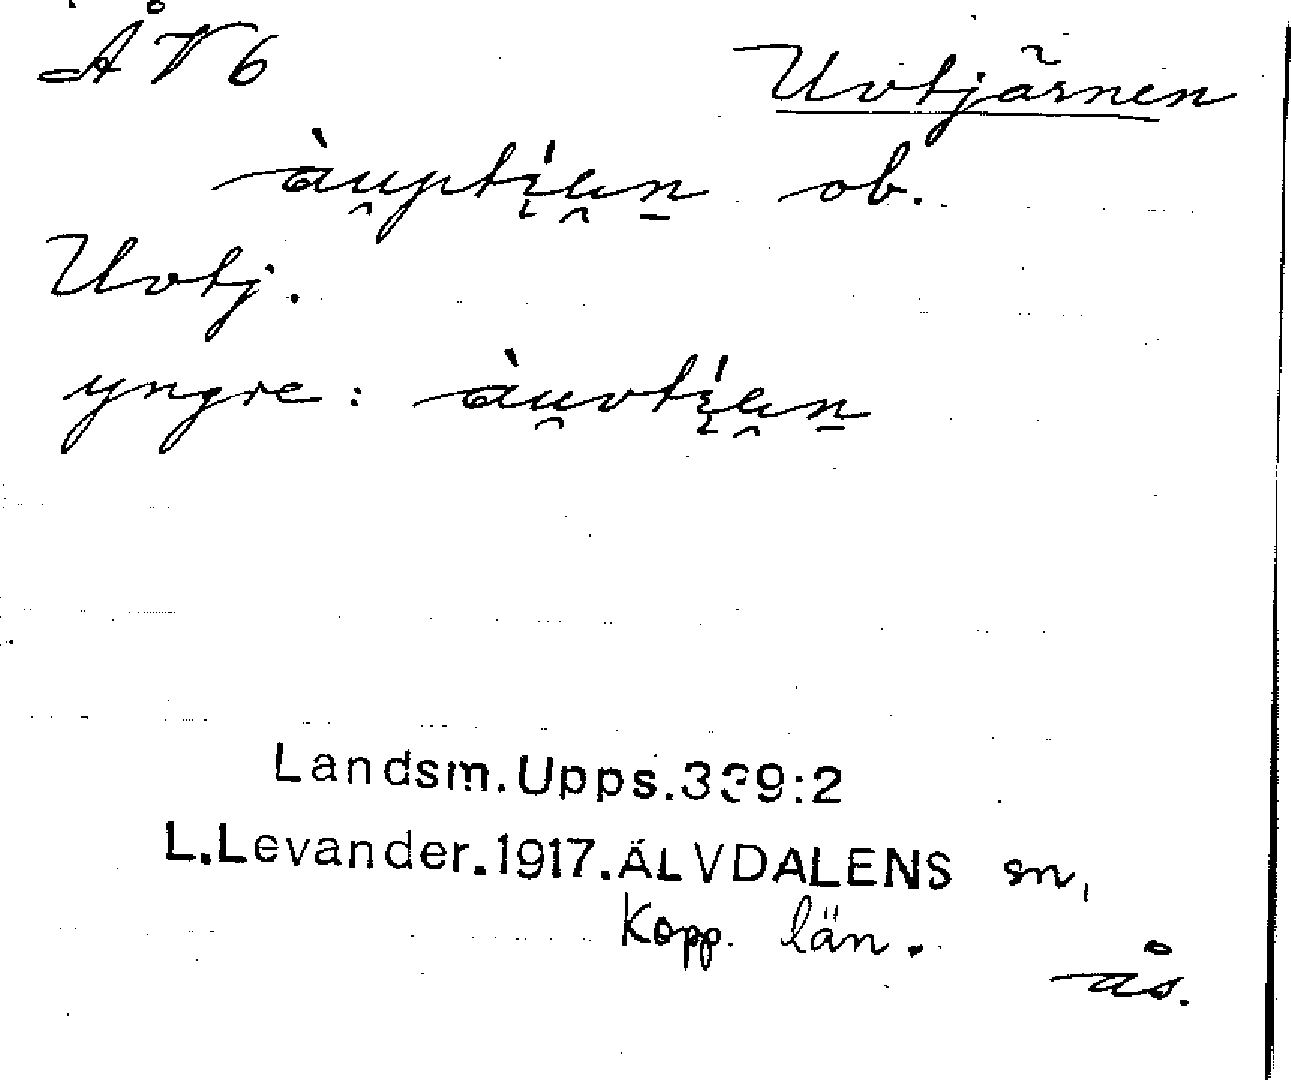 ÅV6 Uvtjärnen
àu̯ptı̨́ɐ̯n̠ ob.
Uvtj.
yngre: àu̯vtı̨́ɐ̯n̠
Landsm.Upps.339:2
L.Levander.1917.ÄLVDALENS sn,
Kopp. län.
ås.